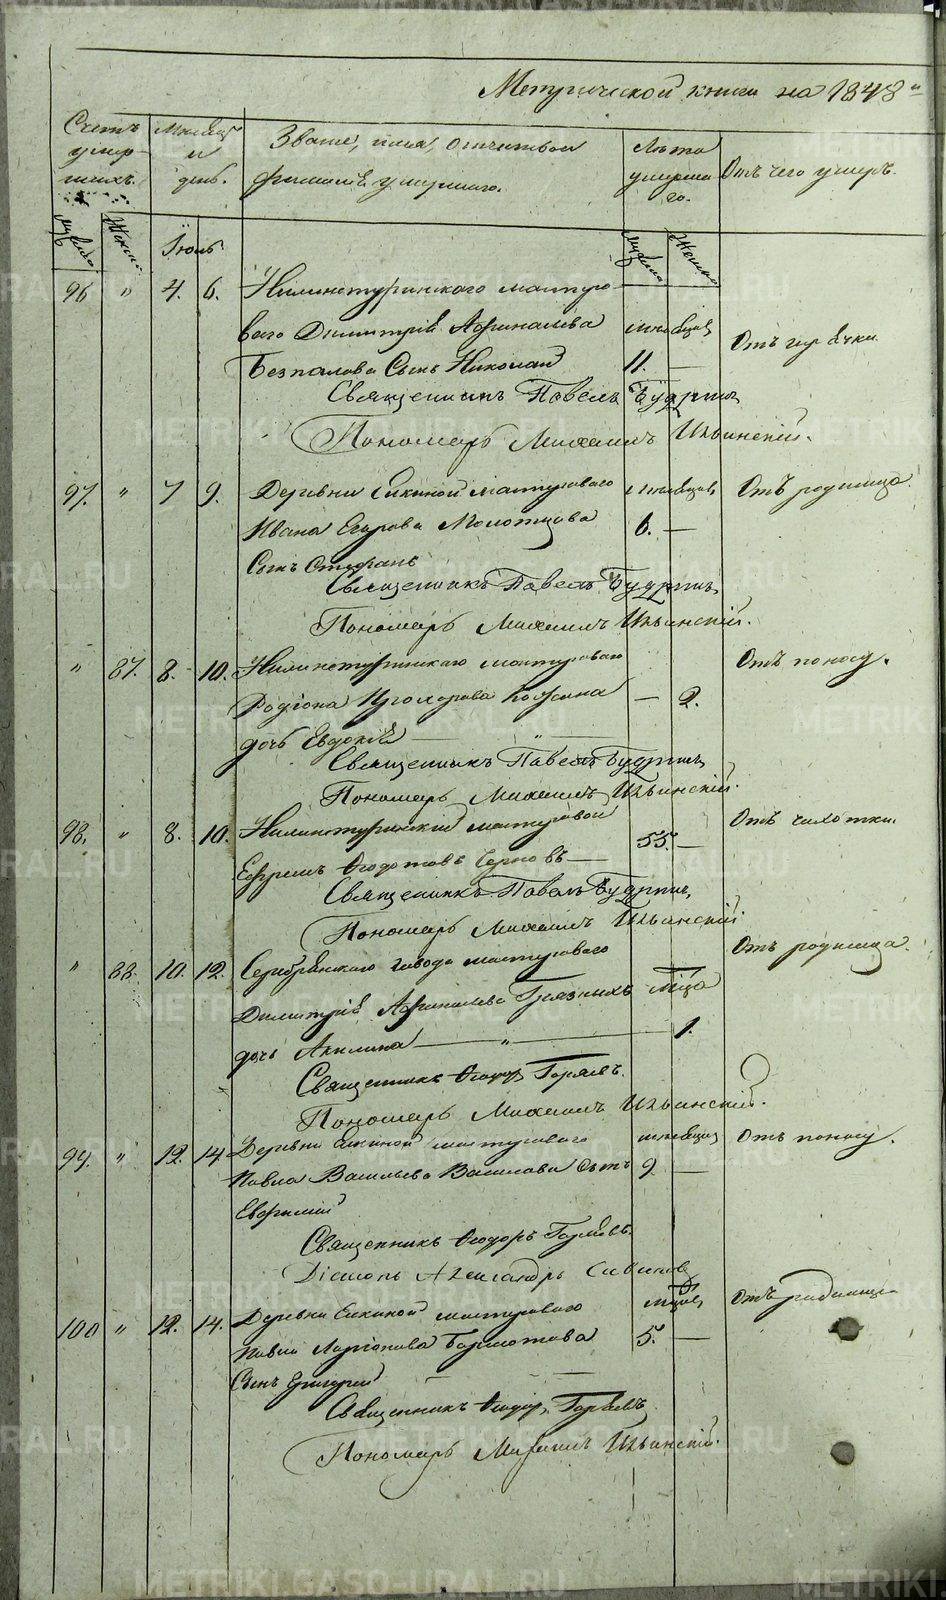 Метрической книги на 1848
Счетъ умершихъ.
Мѣсяцъ и день.
Званіе, имя, отчество и фамилія умершаго.
Лѣта умершаго.
Отъ чего умеръ.
Мужеска
Женска
Іюль
Мужеска
Женска
96 " 4. 6. Нижнетуринскаго мастеро-
ваго Димитрія Афанасьева мѣсяцовъ
Безпалова Сынъ Николай 11. — Отъ горячки
Священникъ Павелъ Будринъ
Пономарь Михаилъ Ильинскій.
97. " 7 9. Деревни Елкиной мастероваго мѣсяцовъ Отъ родимца
Ивана Егорова Молотцова 6. —
Сынъ Стефанъ
Священникъ Павелъ Будринъ
Пономарь Михаилъ Ильинскій.
" 87. 8. 10. Нижнетуринскаго мастероваго Отъ поносу.
Родіона Прохорова — 2.
дочь Евдокія — " —
Священникъ Павелъ Будринъ
Пономарь Михаилъ Ильинскій.
98. " 8. 10. Нижнетуринскій мастеровой 55. — Отъ чахотки.
Ефремъ Ѳедотовъ Черновъ —
Священникъ Павелъ Будринъ
Пономарь Михаилъ Ильинскій
" 88. 10. 12. Серебрянскаго завода мастероваго Отъ родимца
Димитрія Афанасьева Грязныхъ мѣсяца
дочь Акилина — " — 1.
Священникъ Ѳеодоръ Горяевъ.
Пономарь Михаилъ Ильинскій.
99. " 12. 14. Деревни Елкиной мастероваго мѣсяцовъ Отъ поносу.
Павла Васильева Сынъ 9. —
Евфимій
Священникъ Ѳеодоръ Горяевъ.
Діаконъ Александръ
100 " 12. 14. Деревни Елкиной мастероваго мѣсяцовъ Отъ родимца
Ларіонова 5. —
Сынъ Григорій — —
Священникъ Ѳеодоръ Горяевъ
Пономарь Михаилъ Ильинскій.
METRIKI.GASO-URAL.RU